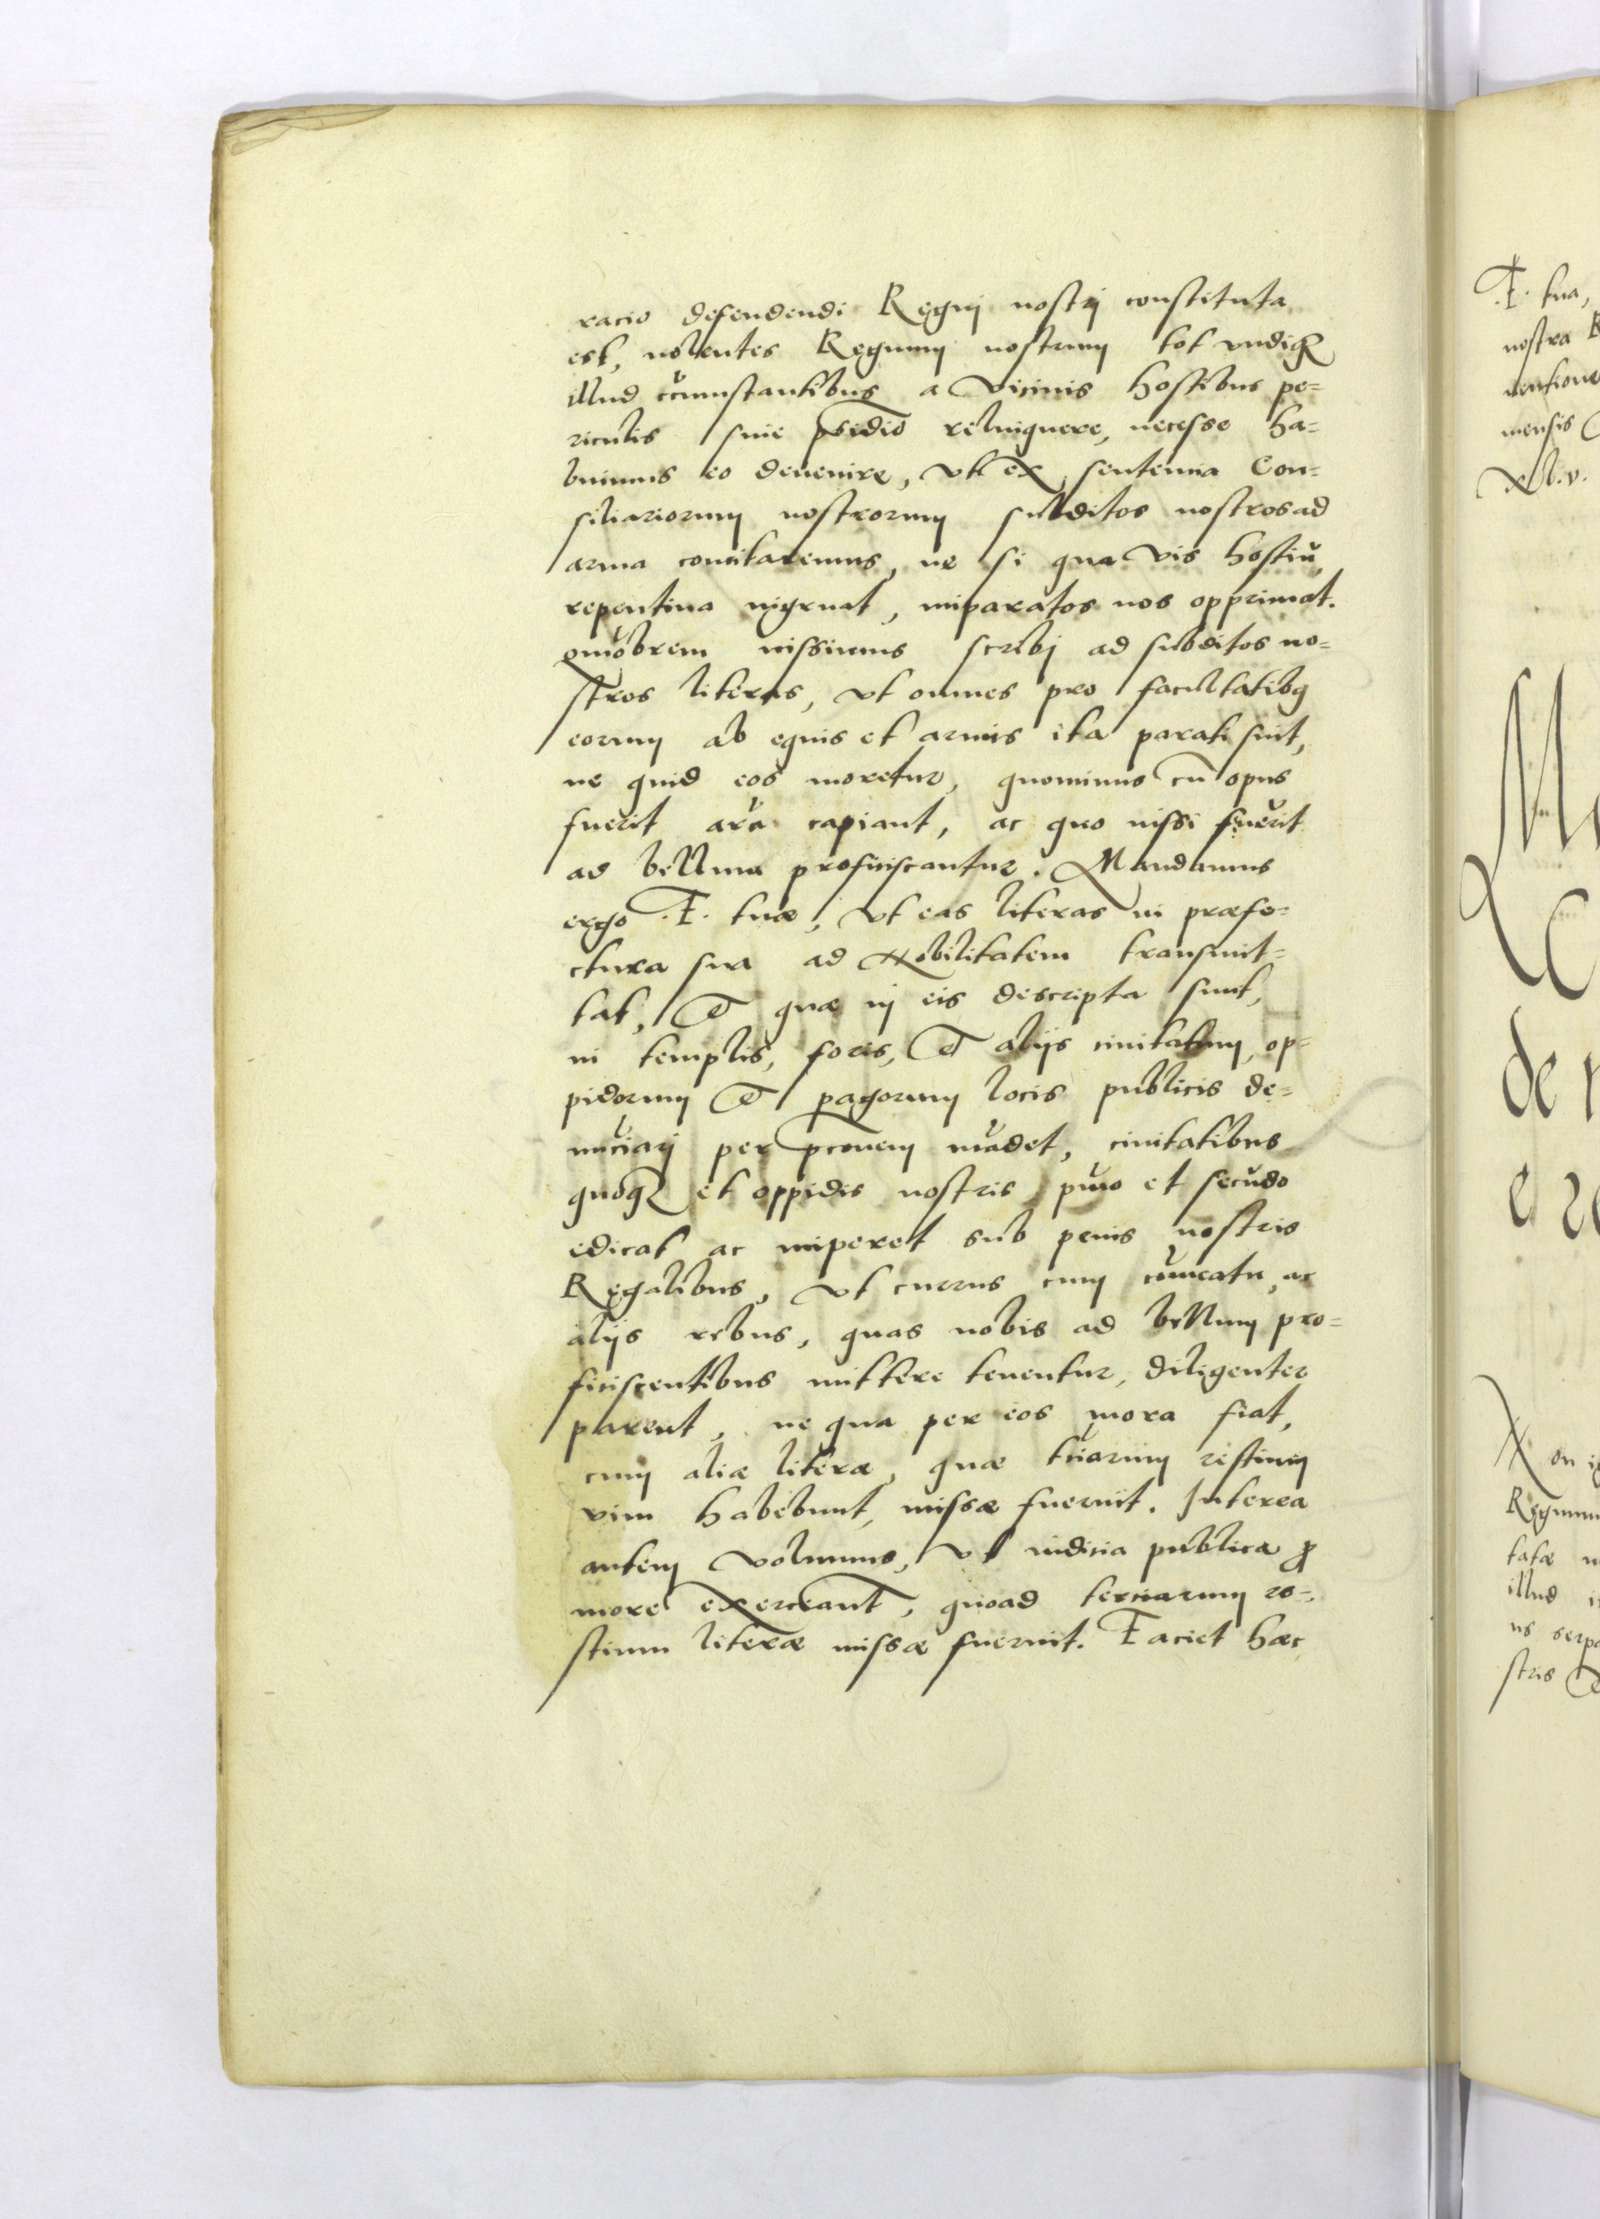 racio defendendi Regnj nostrj constituta
est, nolentes Regnum nostrum tot vndiqꝫ
illud cirumstantibus a vicinis hostibus pe=
riculis sine psidio relinquere, necesse ha=
buimus eo deuenire, vt ex sententia Con=
siliariorum nostrorum subditos nostros ad
arma concitaremus, ne si qua vis hostiū
repentina ingruat, imparatos nos opprimat.
quiobrem iussimus scribj ad subditos no=
stros literas, vt omnes pro facultatibq
eorum ab equis et armis ita parati sint,
ne quid eos moretur, quominus cū opus
fuerit ara capiant, ac quo iussi fuerit
ad bellum proficiscantur. Mandamus
ergo .F. tuæ, vt eas literas in præfe=
ctura sua ad Nobilitatem transmit=
tat, et quæ in eis descripta sunt,
in templis, foris, et alijs ciuitatum, op=
pidorum et pagorum locis publicis de=
nūciarj per pconem mādet, ciuitatibus
quoqꝫ et oppidis nostris primo et secūdo
edicat ac imperet sub penis nostris
Regalibus, vt currus cum comeatu, ac
alijs rebus, quas nobis ad bellum pro=
ficiscentibus mittere tenentur, diligenter
parent, ne qua per eos mora fiat,
cum aliæ literæ, quæ tciarum restium
vim habebunt, missæ fuerint. Interea
autem volumus, vt iudicia publica ꝓ
more exerceant, quoad terciarum re=
stium literæ missæ fuerint. Faciet hæc
.F. tua,
nostra
mensis
xl.v.
M
C
de
e
Non
Regnum
tatæ
illud
us
stris